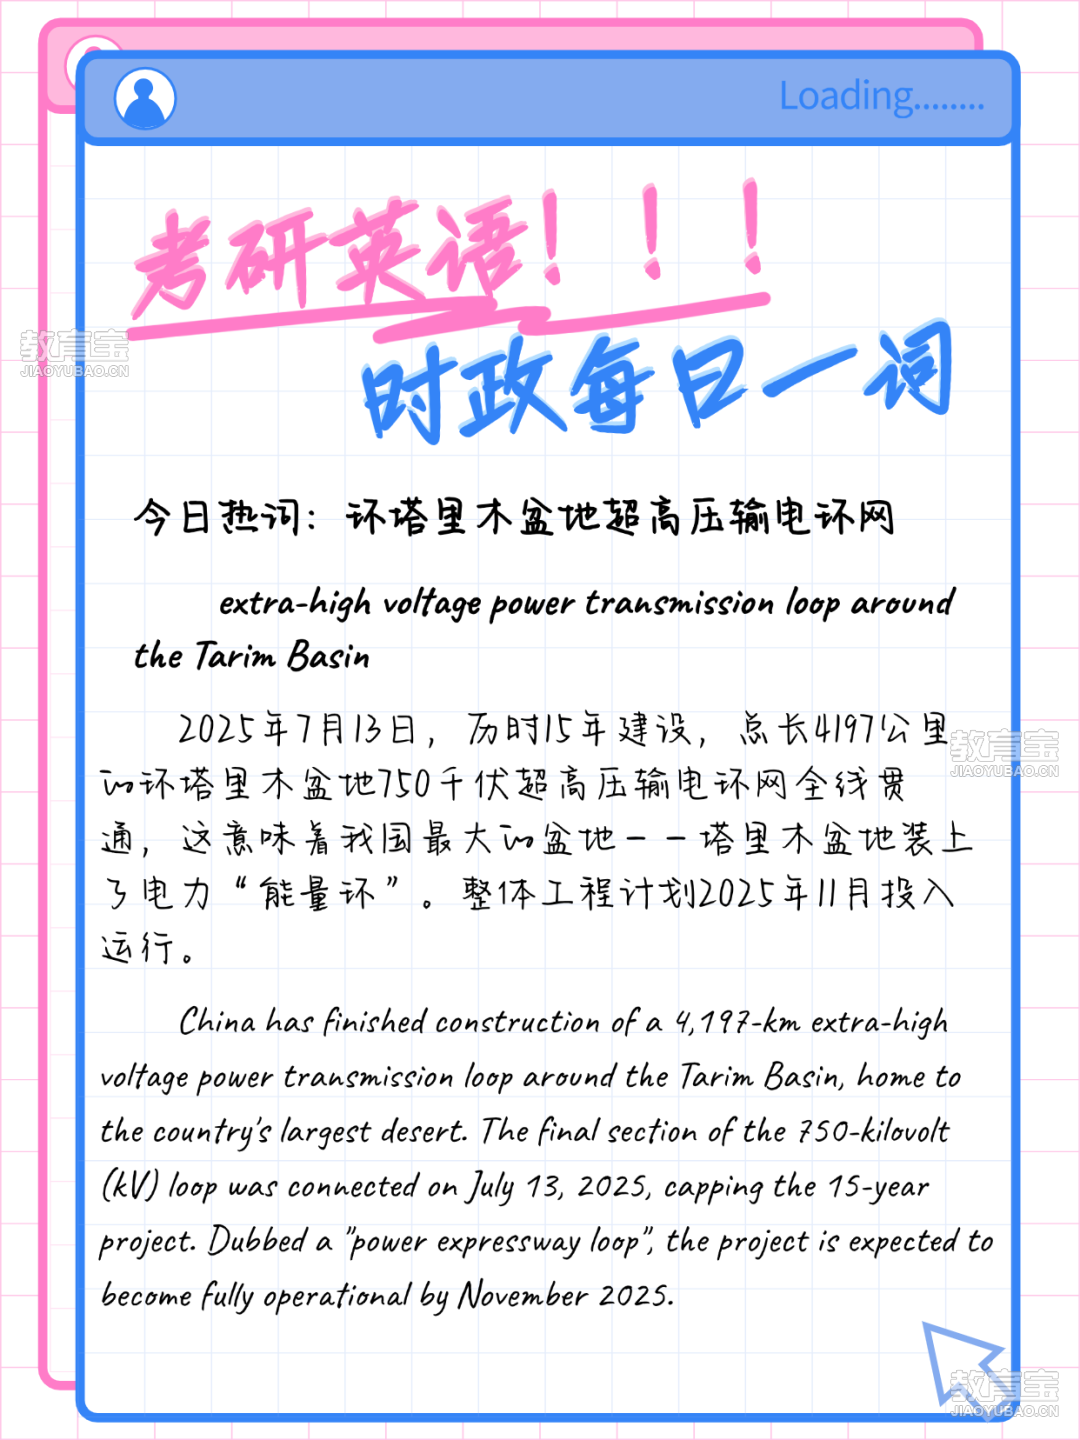 Loading........
考研英语！！！
时政每日一词
教育宝
JIAOYUBAO.CN
今日热词：环塔里木盆地超高压输电环网
extra-high voltage power transmission loop around
the Tarim Basin
2025年7月13日，历时15年建设，总长4197公里
的环塔里木盆地750千伏超高压输电环网全线贯
通，这意味着我国最大的盆地——塔里木盆地装上
了电力“能量环”。整体工程计划2025年11月投入
运行。
教育宝
JIAOYUBAO.CN
China has finished construction of a 4,197-km extra-high
voltage power transmission loop around the Tarim Basin, home to
the country's largest desert. The final section of the 750-kilovolt
(kV) loop was connected on July 13, 2025, capping the 15-year
project. Dubbed a "power expressway loop", the project is expected to
become fully operational by November 2025.
教育宝
JIAOYUBAO.CN